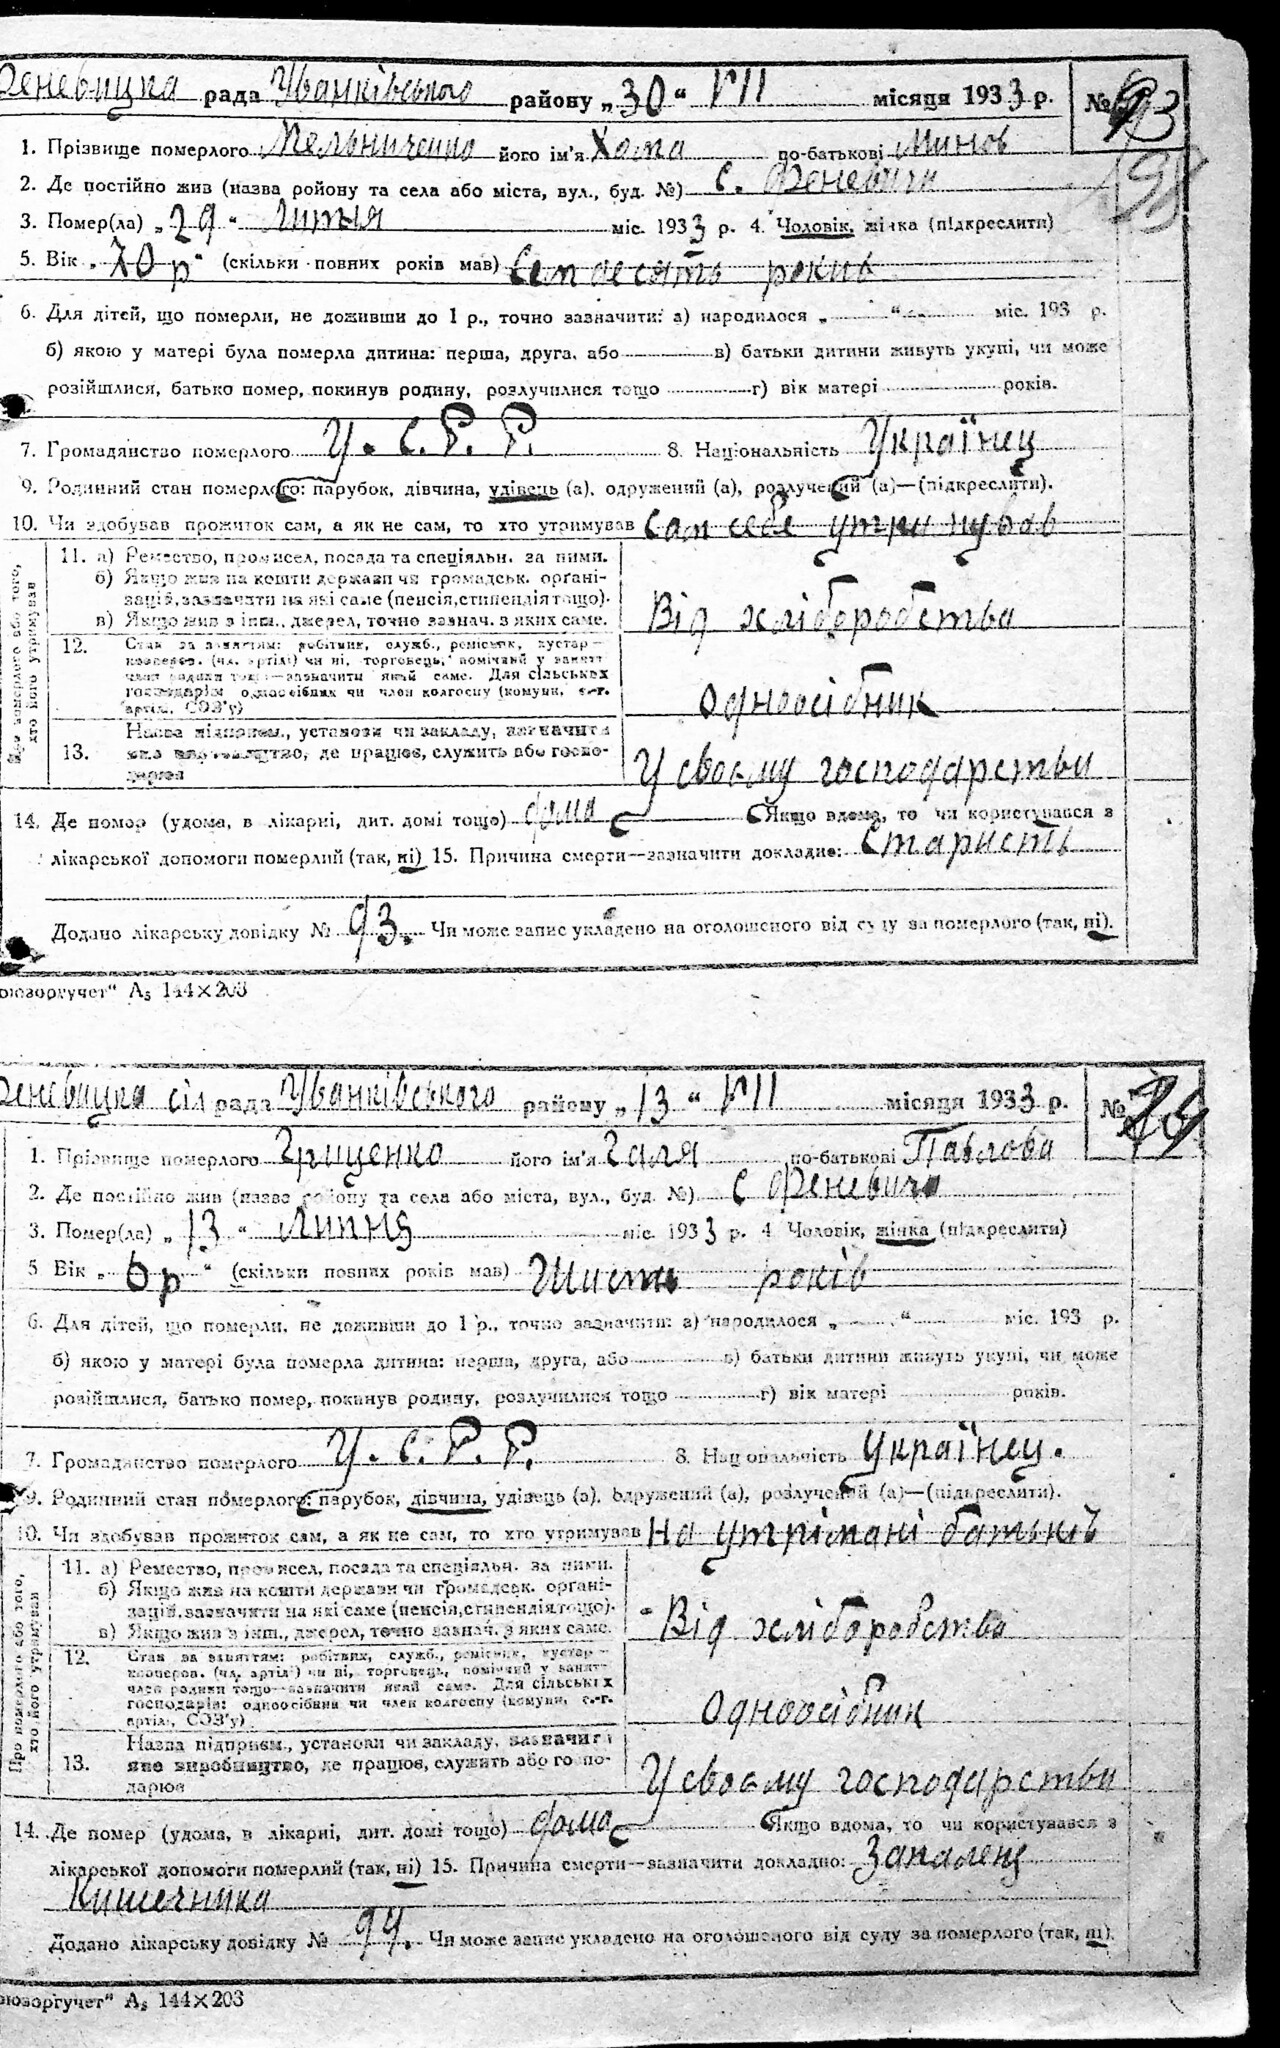 Феневицка рада Іванківського району „30“ VII місяця 1933 р. № 93
1. Прізвище померлого Мельниченко його ім'я Хома по-батькові Минов
2. Де постійно жив (назва ройону та села або міста, вул., буд. №) с. Феневичи
3. Помер(ла) „29“ Липня міс. 1933 р. 4. Чоловік, жінка (підкреслити)
5. Вік „70 р“ (скільки повних років мав) Семдесять рокив
6. Для дітей, що померли, не доживши до 1 р., точно зазначити: а) народилося „ “ міс. 193 р.
б) якою у матері була померла дитина: перша, друга, або в) батьки дитини живуть укупі, чи може
розійшлися, батько помер, покинув родину, розлучилися тощо г) вік матері років.
7. Громадянство померлого У. С. Р. Р. 8. Національність Українец
9. Родинний стан померлого: парубок, дівчина, удівець (а), одружений (а), розлучений (а)—(підкреслити).
10. Чи здобував прожиток сам, а як не сам, то хто утримував Сам себе утримував
Про померлого або того, хто його утримував
11. а) Ремество, промисел, посада та спеціяльн. за ними.
б) Якщо жив на кошти держави чи громадськ. організацій, зазначити на які саме (пенсія, стипендія тощо).
в) Якщо жив з інш., джерел, точно зазнач. з яких саме.
Від хліборобства
12. Стан за заняттям: робітник, служб., реміснік, кустар—
кооперов. (чл. артілі) чи ні, торговець, помічний у занят.
член родини тощо—зазначити який саме. Для сільських
господарів: одноосібник чи член колгоспу (комуни, с.-г.
артіль, СОЗ'у)
Одноосібник
13. Назва підприєм., установи чи закладу, зазначити
яке виробництво, де працює, служить або госпо-
дарює
У своєму господарстви
14. Де помер (удома, в лікарні, дит. домі тощо) дома Якщо вдома, то чи користувався з
лікарської допомоги померлий (так, ні) 15. Причина смерти—зазначити докладно: Старисть
Додано лікарську довідку № 93. Чи може запис укладено на оголошеного від суду за померлого (так, ні).
оюзоргучет“ А₅ 144×203
Феневицка сіл рада Іванківського району „13“ VII місяця 1933 р. №
1. Прізвище померлого Гриценко його ім'я Галя по-батькові Павлова
2. Де постійно жив (назва ройону та села або міста, вул., буд. №) с Феневичи
3. Помер(ла) „13“ Липня міс. 1933 р. 4 Чоловік, жінка (підкреслити)
5 Вік „6 р“ (скільки повних років мав) Шисть років
6. Для дітей, що померли, не доживши до 1 р., точно зазначити: а) народилося „ “ міс. 193 р.
б) якою у матері була померла дитина: перша, друга, або в) батьки дитини живуть укупі, чи може
розійшлися, батько помер, покинув родину, розлучилися тощо г) вік матері років.
7. Громадянство померлого У. С. Р. Р. 8. Національність Українец.
9. Родинний стан померлого: парубок, дівчина, удівець (а), одружений (а), розлучений (а)—(підкреслити).
10. Чи здобував прожиток сам, а як не сам, то хто утримував На утрімані батьків
Про померлого або того, хто його утримував
11. а) Ремество, промисел, посада та спеціяльн. за ними.
б) Якщо жив на кошти держави чи громадськ. організацій, зазначити на які саме (пенсія, стипендія тощо).
в) Якщо жив з інш., джерел, точно зазнач. з яких саме.
Від хліборобства
12. Стан за заняттям: робітник, служб., реміснік, кустар—
кооперов. (чл. артілі) чи ні, торговець, помічний у занят.
член родини тощо—зазначити який саме. Для сільських
господарів: одноосібник чи член колгоспу (комуни, с.-г.
артіль, СОЗ'у)
Одноосібник
13. Назва підприєм., установи чи закладу, зазначити
яке виробництво, де працює, служить або госпо-
дарює
У своєму господарстви
14. Де помер (удома, в лікарні, дит. домі тощо) дома Якщо вдома, то чи користувався з
лікарської допомоги померлий (так, ні) 15. Причина смерти—зазначити докладно: Запаленя
Кишечника
Додано лікарську довідку № 94. Чи може запис укладено на оголошеного від суду за померлого (так, ні).
оюзоргучет“ А₅ 144×203